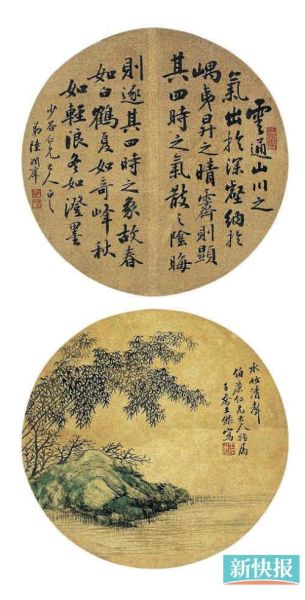 雲通山川之
氣出於深壑納於
嵎夷昇之晴霽則顯
其四時之氣散之陰晦
則逐其四時之象故春
如白鶴夏如奇峰秋
如輕浪冬如澄墨
少谷仁兄大人正之
弟陸潤庠
水竹清聲
伯廉仁兄大人詧属
子大王傑寫
新快报